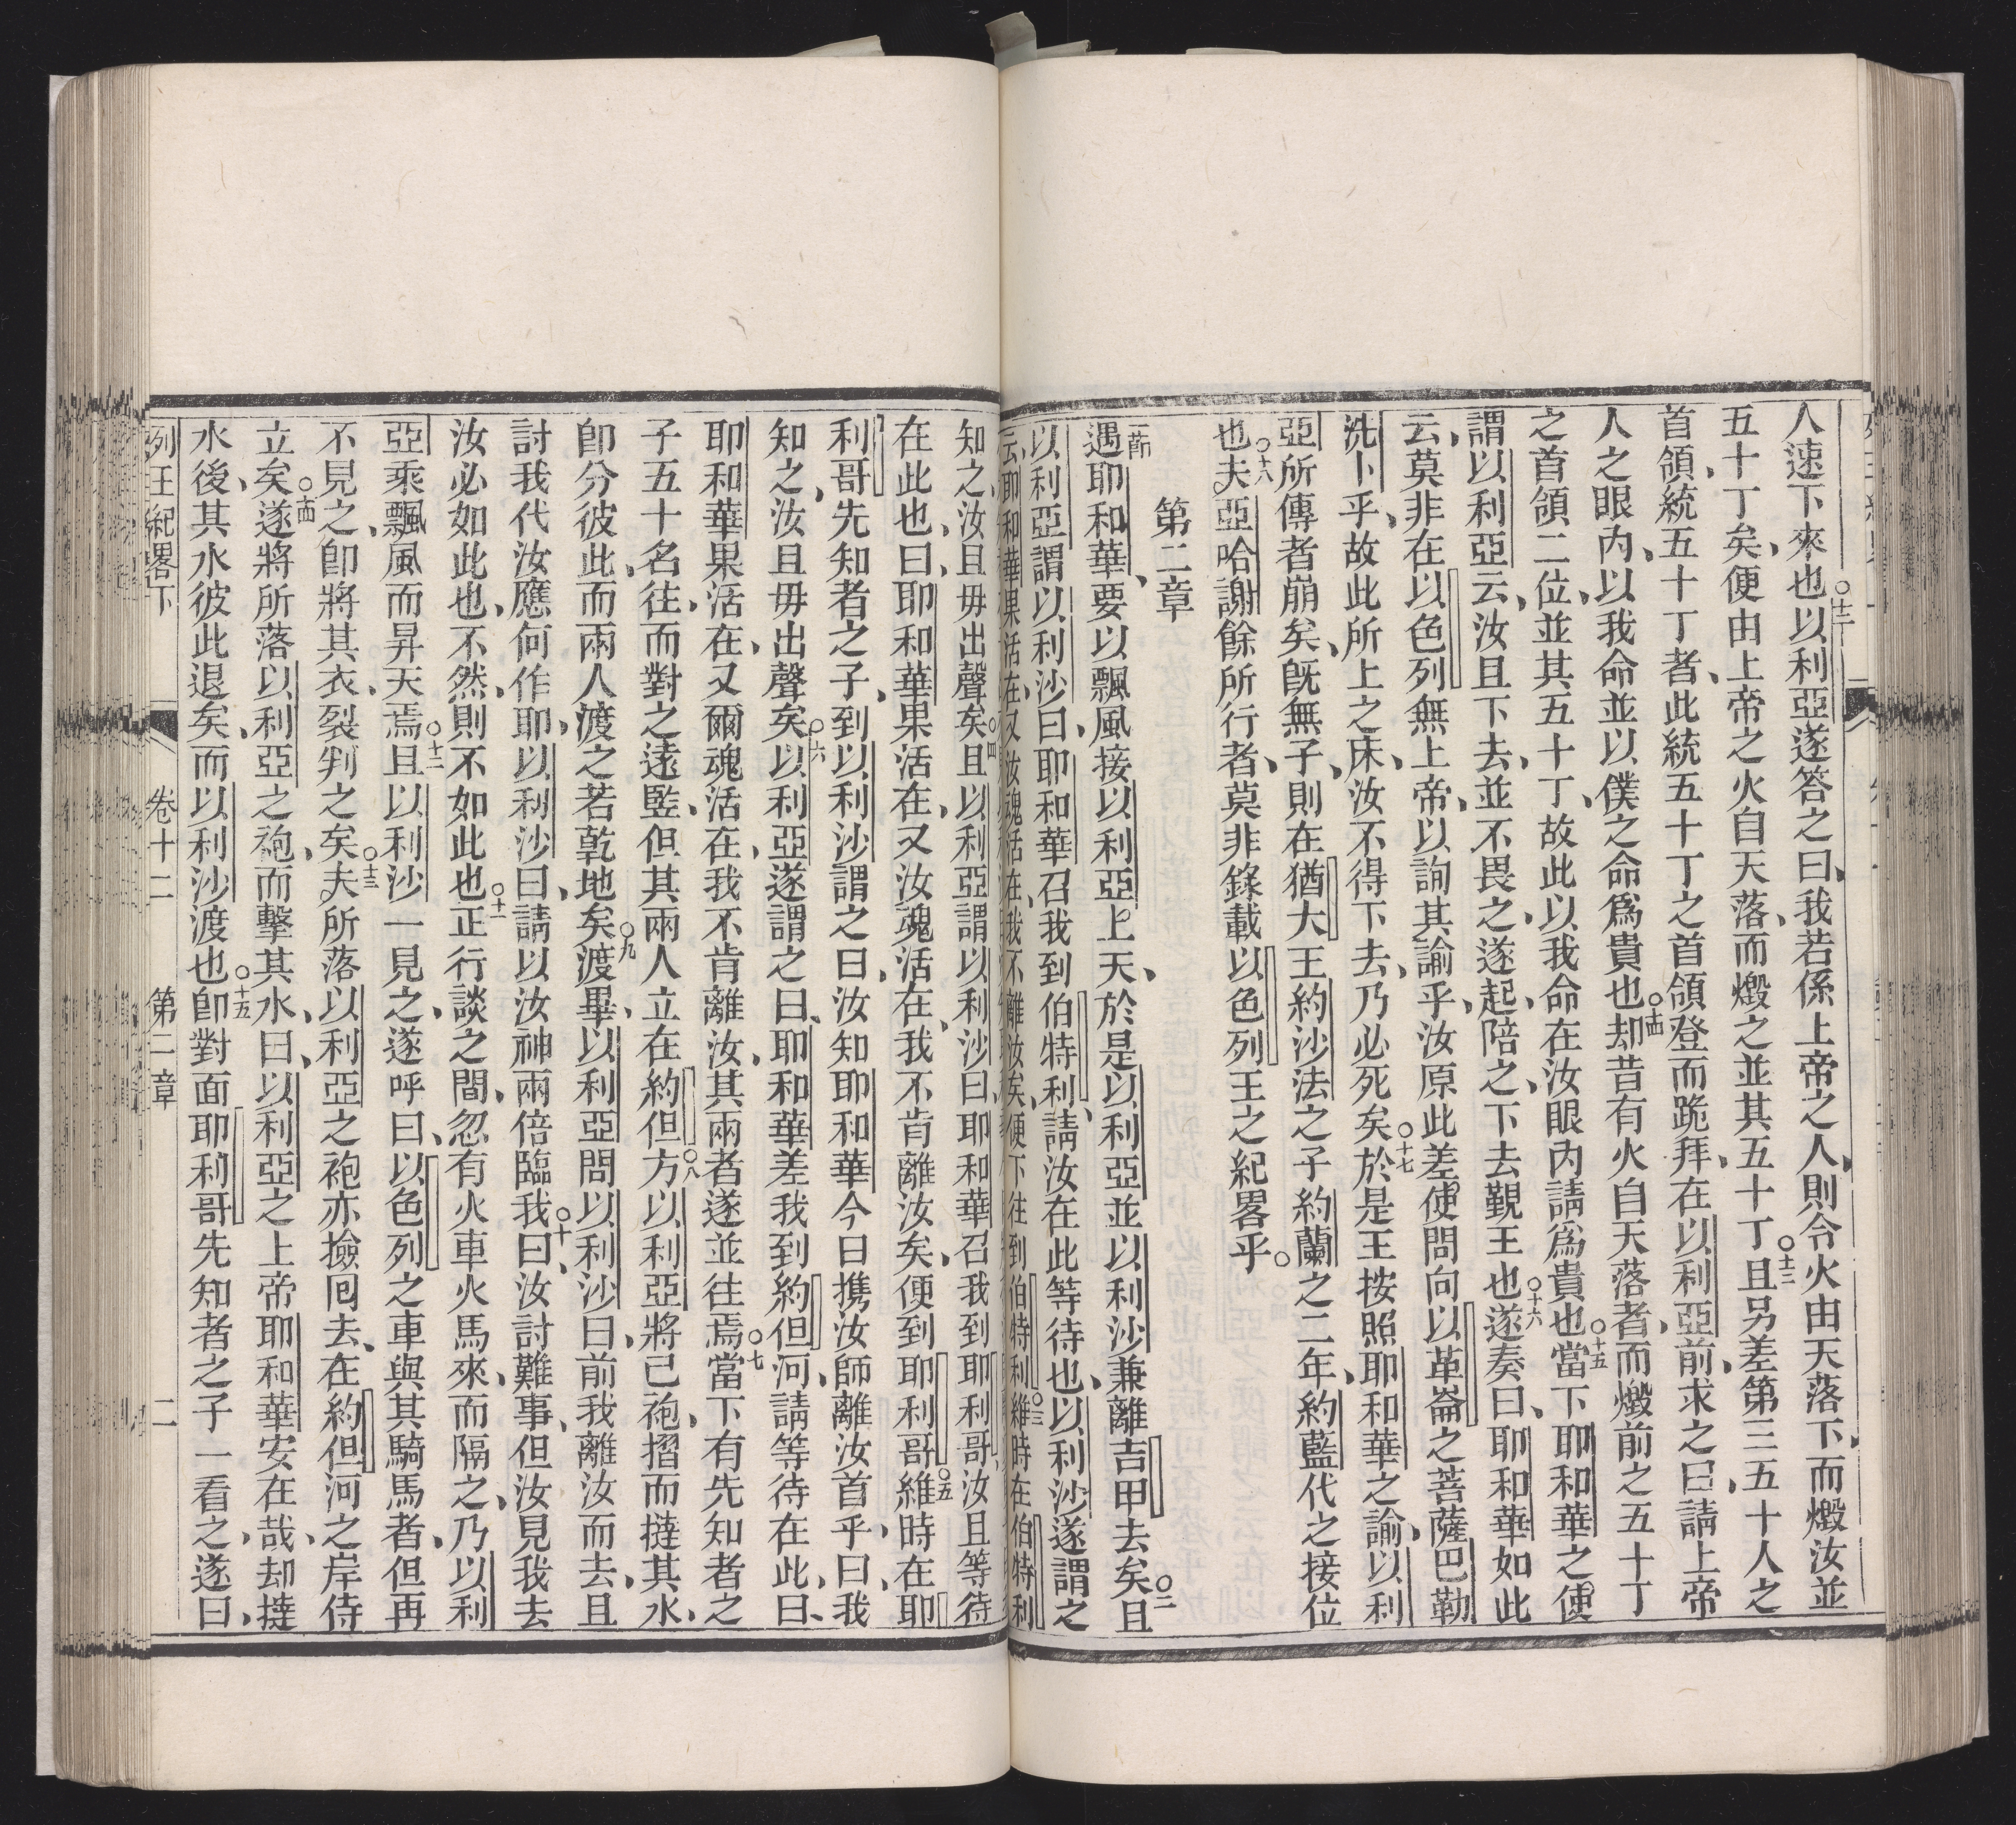 人速下來也○十二以利亞遂答之曰、我若係上帝之人、則令火由天落下、而燬汝並
五十丁矣、便由上帝之火自天落、而燬之並其五十丁○十三且另差第三五十人之
首領、統五十丁者、此統五十丁之首領登而跪拜、在以利亞前、求之曰、請上帝
人之眼內、以我命並以僕之命爲貴也○十四却昔有火自天落者、而燬前之五十丁
之首領二位、並其五十丁、故此以我命在汝眼內請爲貴也○十五當下耶和華之使
謂以利亞云、汝且下去、並不畏之、遂起、陪之、下去覲王也○十六遂奏曰、耶和華如此
云、莫非在以色列無上帝、以詢其諭乎、汝原此差使問向以革崙之菩薩巴勒
洗卜乎、故此所上之床、汝不得下去、乃必死矣○十七於是王按照耶和華之諭、以利
亞所傳者崩矣、旣無子、則在猶大王約沙法之子約蘭之二年、約藍代之接位
也○十八夫亞哈謝餘所行者、莫非錄載以色列王之紀畧乎。
第二章
一節遇耶和華、要以飄風接以利亞上天、於是以利亞並以利沙兼離吉甲去矣○二且
以利亞謂以利沙曰、耶和華召我到伯特利、請汝在此等待也、以利沙遂謂之
云、耶和華果活在、又汝魂活在、我不離汝矣、便下往到伯特利○三維時在伯特利
知之、汝且毋出聲矣○四且以利亞謂以利沙曰、耶和華召我到耶利哥、汝且等待
在此也、曰、耶和華果活在、又汝魂活在、我不肯離汝矣、便到耶利哥○五維時在耶
利哥先知者之子、到以利沙謂之曰、汝知耶和華今日攜汝師離汝首乎、曰、我
知之、汝且毋出聲矣○六以利亞遂謂之曰、耶和華差我到約但河、請等待在此、曰、
耶和華果活在、又爾魂活在、我不肯離汝、其兩者遂並往焉○七當下有先知者之
子五十名往、而對之遠監、但其兩人立在約但方○八以利亞將己袍、摺而撻其水、
卽分彼此、而兩人渡之若乾地矣○九渡畢、以利亞問以利沙曰、前我離汝而去、且
討我代汝應何作耶、以利沙曰、請以汝神兩倍臨我○十曰、汝討難事、但汝見我去
汝必如此也、不然、則不如此也○十一正行談之間、忽有火車火馬來、而隔之、乃以利
亞乘飄風而昇天焉○十二且以利沙一見之、遂呼曰、以色列之車與其騎馬者、但再
不見之、卽將其衣、裂判之矣○十三夫所落以利亞之袍亦撿囘去、在約但河之岸侍
立矣○十四遂將所落以利亞之袍、而擊其水、曰、以利亞之上帝耶和華安在哉、却撻
水後、其水彼此退矣、而以利沙渡也○十五卽對面耶利哥先知者之子一看之、遂曰、
列王紀畧下 卷十二 第二章 二